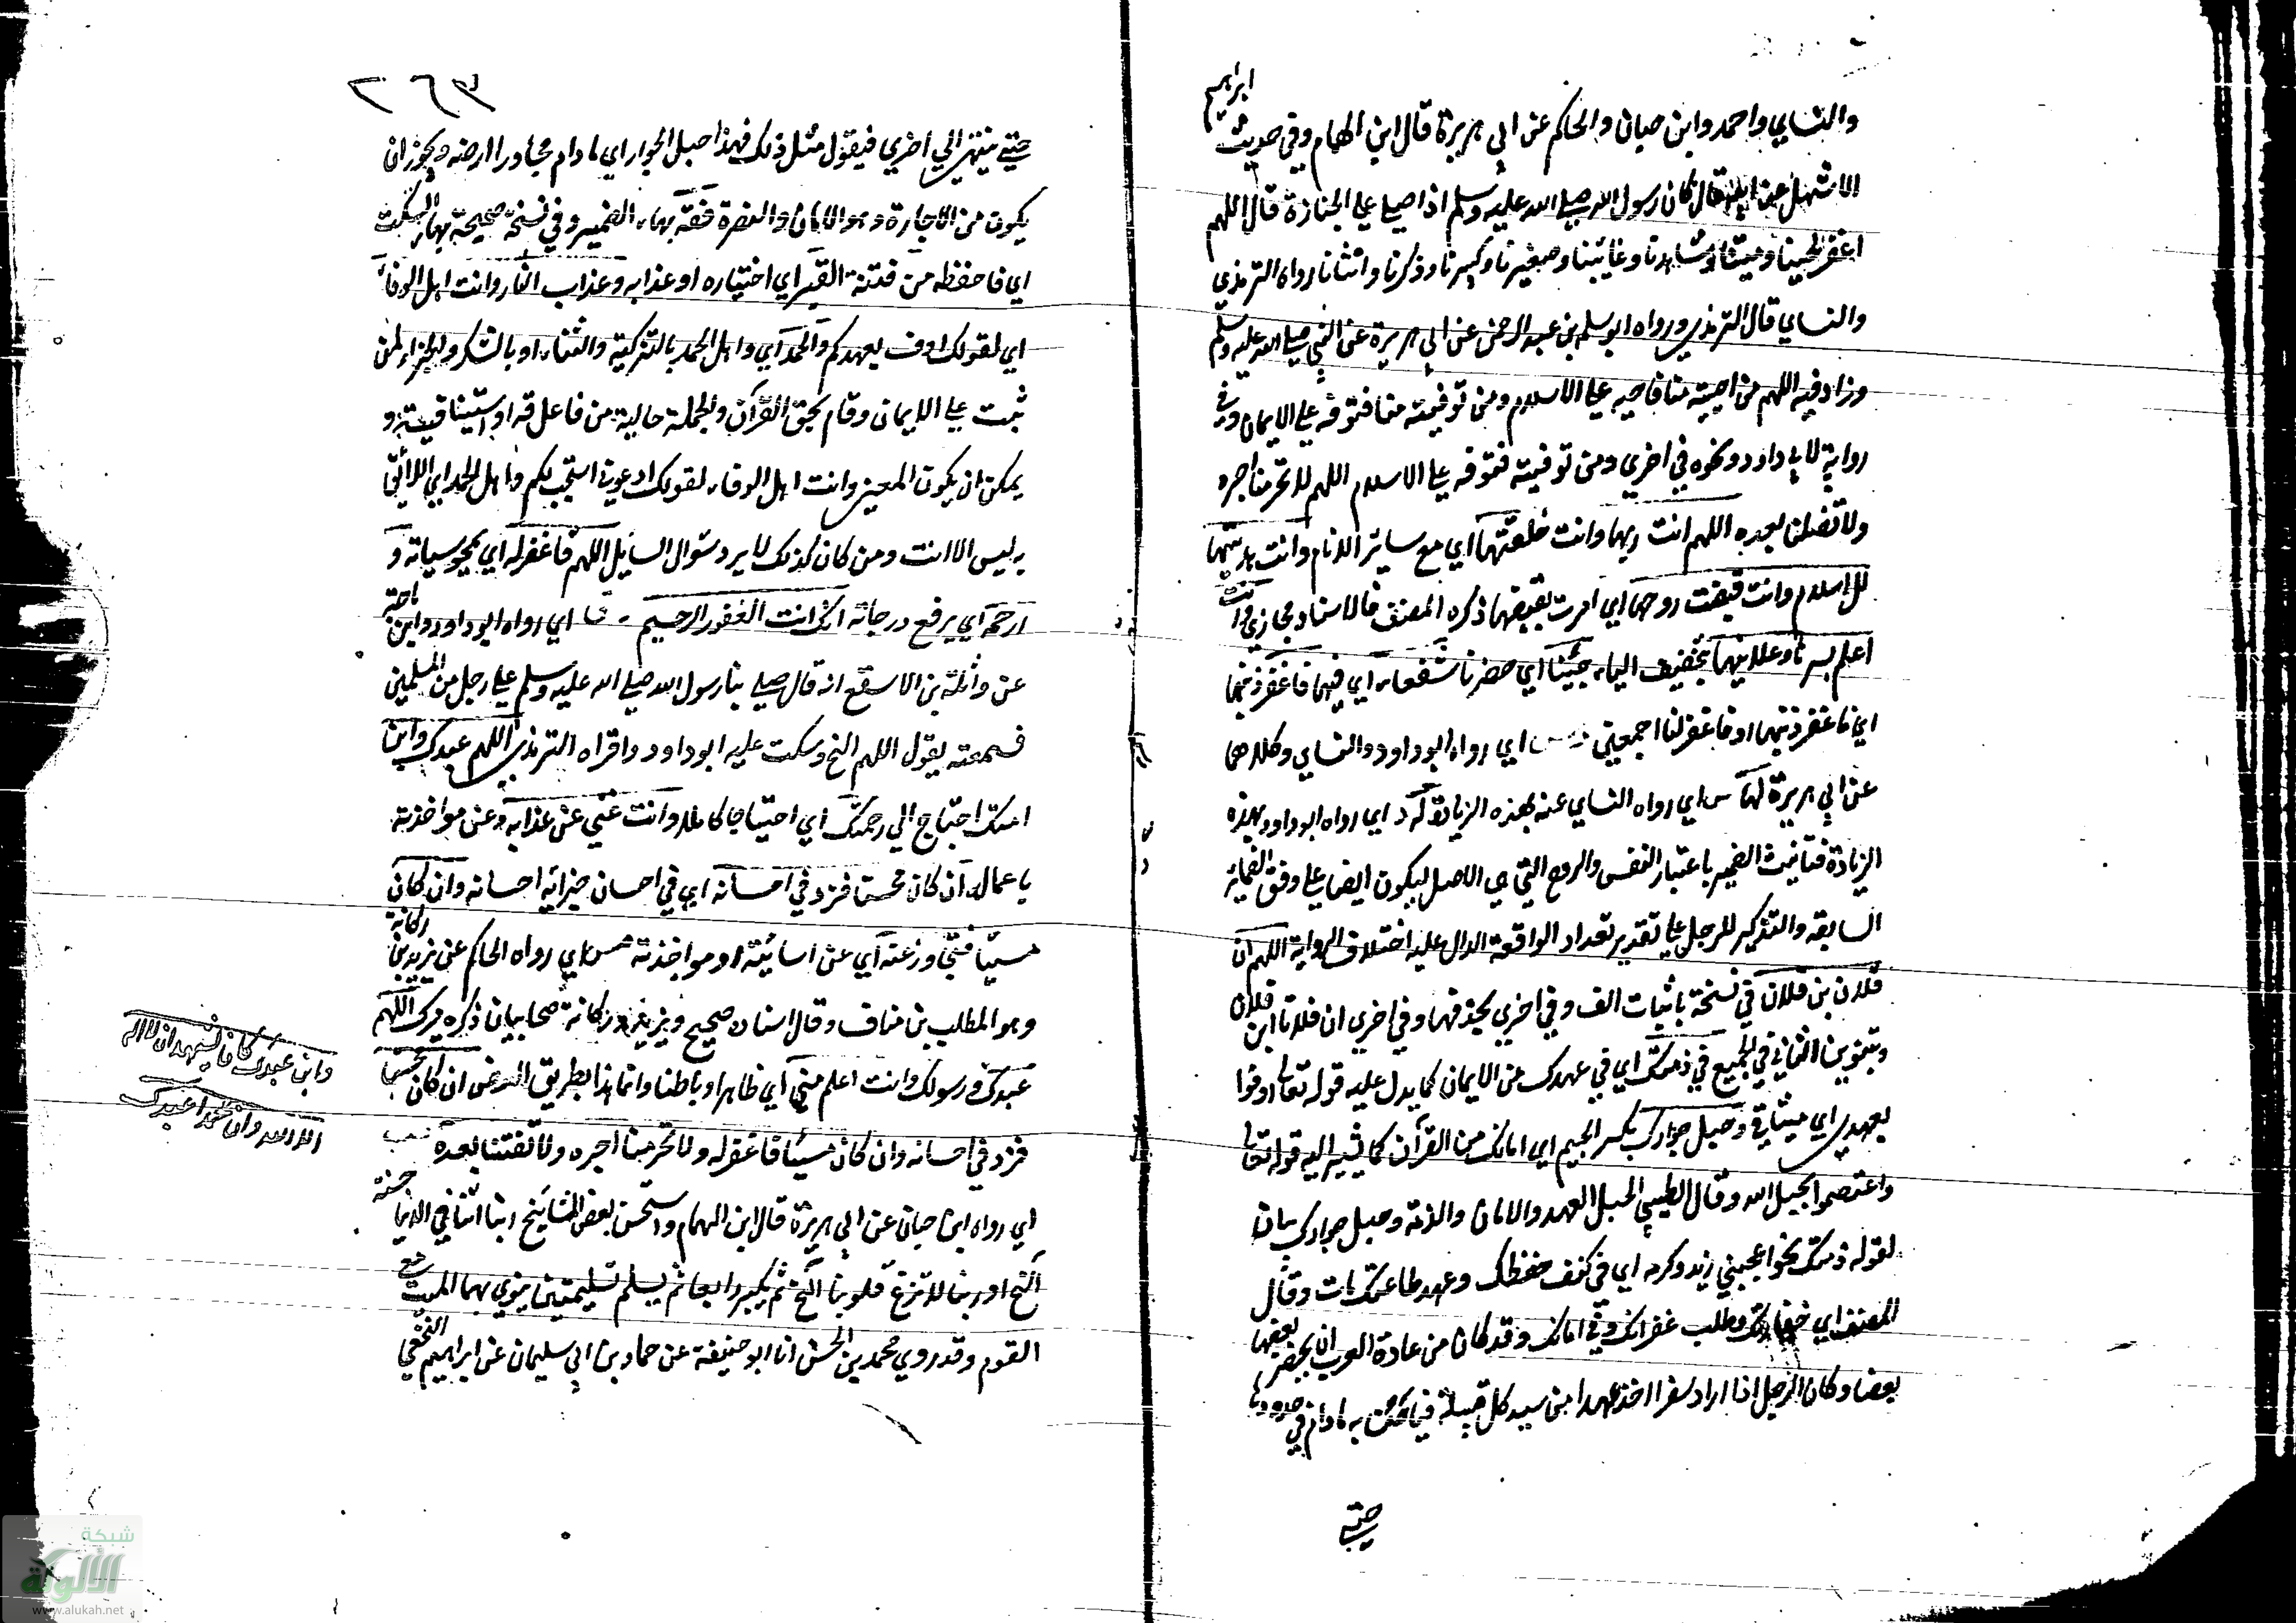 والنساي واحمد وابن حبان والحاكم عن ابي هريرة قال ابن الهمام وفي حديث ابراهيم
الاشهل عن ابيه قال كان رسول الله صلى الله عليه وسلم اذا صلى على الجنازة قال اللهم
اغفر لحينا وميتنا وشاهدنا وغائبنا وصغيرنا وكبيرنا وذكرنا وانثانا رواه الترمذي
والنساي قال الترمذي ورواه ابو سلمة بن عبد الرحمن عن ابي هريرة عن النبي صلى الله عليه وسلم
وزاد فيه اللهم من احييته منا فاحيه على الاسلام ومن توفيته منا فتوفه على الايمان وفي
رواية لابي داود ونحوه في اخري ومن توفيته فتوفه على الاسلام اللهم لا تحرمنا اجره
ولا تضلنا بعده اللهم انت ربها وانت خلقتها اي مع ساير الانام وانت هديتها
للاسلام وانت قبضت روحها اي امرت بقبضها ذكره المصنف فالاسناد مجازي وانت
اعلم بسرها وعلانيتها بتخفيف الياء جئنا اي حضرنا شفعاء اي فيها فاغفر ذنبها
اي فاغفر ذنبها او فاغفر لنا اجمعين اي رواه ابو داود والنساي وكلاهما
عن ابي هريرة لها س اي رواه النساي عنه بهذه الزيادة له د اي رواه ابو داود بهذه
الزيادة فتانيث الضمير باعتبار النفس والروح التي هي الاصل ليكون ايضا على وفق الضمائر
السابقة والتذكير للرجل على تقدير تعداد الواقعة الدال عليه اختلاف الرواية اللهم ان
فلان بن فلان في نسخة باثبات الف وفي اخري بحذفهما وفي اخري ان فلانا ابن فلان
وبتنوين الثاني في الجميع في ذمتك اي في عهدك من الايمان كما يدل عليه قوله تعالى اوفوا
بعهدي اي ميثاقي وحبل جوارك بكسر الجيم اي امانك من القرآن كما يشير اليه قوله تعالى
واعتصموا بحبل الله وقال الطيبي الحبل العهد والامان والذمة وحبل جوارك بيان
لقوله ذمتك نحو اعجبني زيد وكرمه اي في كنف حفظك وعهد طاعتك بات وقال
المصنف اي خفارتك وطلب غفرانك وفي امانك وقد كان من عادة العرب ان يخفر بعضها
بعضا وكان الرجل اذا اراد سفرا اخذ عهدا من سيد كل قبيلة فيامن به مادام في حدودها
حتى
٢٦٣
حتى ينتهي الي اخري فيقول مثل ذلك فهذا حبل الجوار اي مادام مجاورا ارضه ويجوز ان
يكون من الاجارة وهو الامان والنصرة فقه بهاء الضمير وفي نسخة صحيحة بهاء السكت
اي فاحفظه من فتنة القبر اي اختباره او عذابه وعذاب النار وانت اهل الوفاء
اي لقولك اوف بعهدكم والحمد اي واهل الحمد بالتزكية والثناء او بالشكر والجزاء لمن
ثبت على الايمان وقام بحق القرآن والجملة حالية من فاعل قه او استينافية و
يمكن ان يكون المعني وانت اهل الوفاء لقولك ادعوني استجب لكم واهل الحمد اي اللائق
به ليس الا انت ومن كان كذلك لا يرد سؤال السايل اللهم فاغفر له اي بمحو سياته و
ارحمه اي برفع درجاته انك انت الغفور الرحيم د ق اي رواه ابو داود وابن ماجة
عن واثلة بن الاسقع انه قال صلى بنا رسول الله صلى الله عليه وسلم على رجل من المسلمين
فسمعته يقول اللهم الخ وسكت عليه ابو داود واقراه الترمذي اللهم عبدك وابن
امتك احتاج الي رحمتك اي احتياجا كاملا وانت غني عن عذابه وعن مواخذته
باعماله ان كان محسنا فزد في احسانه اي في احسان جزائه احسانه وان كان
مسيئا فتجاوز عنه اي عن اسائته او مواخذته مس اي رواه الحاكم عن يزيد بن ركانة
وهو المطلب بن مناف وقال اسناده صحيح ويزيد وركانة صحابيان ذكره ميرك اللهم
عبدك ورسولك وانت اعلم مني اي ظاهرا وباطنا وانما هذا بطريق العرض ان كان محسنا
فزد في احسانه وان كان مسيئا فاغفر له ولا تحرمنا اجره ولا تفتنا بعده حب
اي رواه ابن حبان عن ابي هريرة قال ابن الهمام واستحسن بعض المشايخ ربنا اتنا في الدنيا حسنة
الخ او ربنا لا تزغ قلوبنا الخ ثم يكبر رابعا ثم يسلم تسليمتين ينوي بهما الميت مع
القوم وقد روي محمد بن الحسن انا ابو حنيفة عن حماد بن ابي سليمان عن ابراهيم النخعي
وابن عبدك كان يشهد ان لا اله
الا الله وان محمدا عبدك
شبكة
الألوكة
www.alukah.net